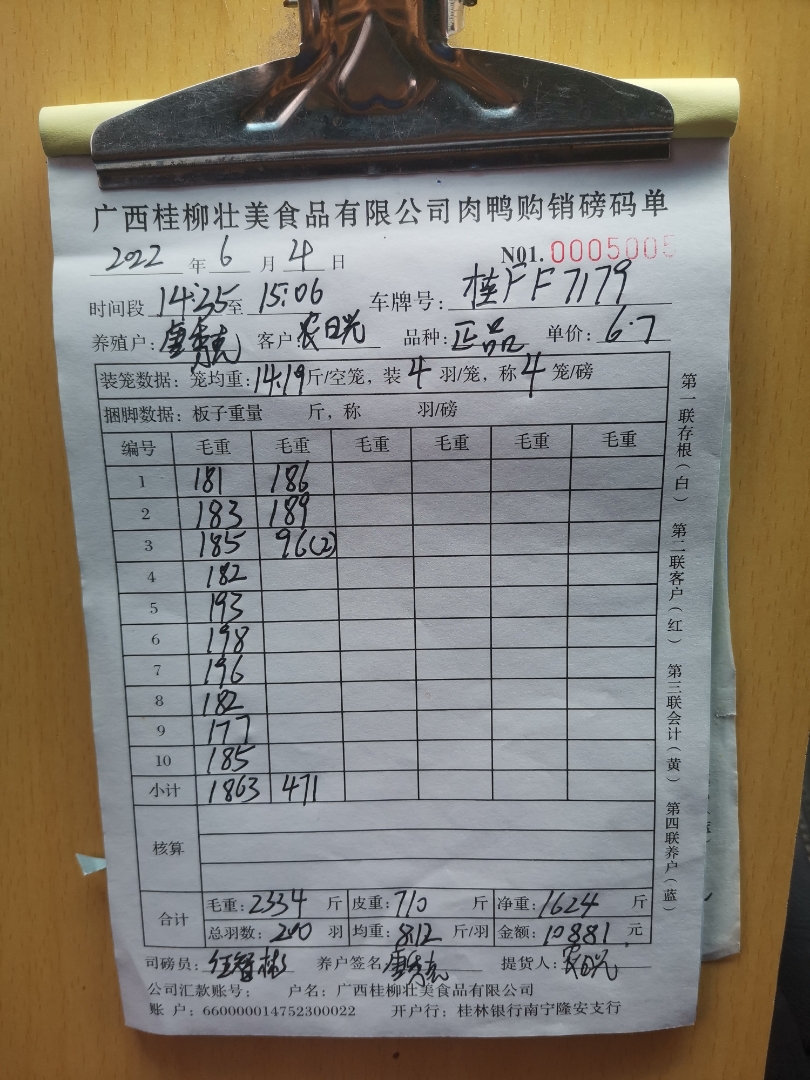 广西桂柳壮美食品有限公司肉鸭购销磅码单
2022 年 6 月 4 日 N01. 0005005
时间段 14:35 至 15:06 车牌号: 桂FF7179
养殖户: 唐秀克 客户: 农日兴 品种: 正品 单价: 6.7
装笼数据: 笼均重: 14.19 斤/空笼, 装 4 羽/笼, 称 4 笼/磅
捆脚数据: 板子重量 斤, 称 羽/磅
编号 毛重 毛重 毛重 毛重 毛重 毛重
1 181 186
2 183 189
3 185 96(2)
4 182
5 193
6 198
7 196
8 182
9 177
10 185
小计 1863 471
核算
合计 毛重: 2334 斤 皮重: 710 斤 净重: 1624 斤
总羽数: 200 羽 均重: 8.12 斤/羽 金额: 10881 元
司磅员: 任智彬 养户签名 唐秀克 提货人: 农日兴
公司汇款账号: 户名: 广西桂柳壮美食品有限公司
账 户: 660000014752300022 开户行: 桂林银行南宁隆安支行
第一联存根(白) 第二联客户(红) 第三联会计(黄) 第四联养户(蓝)